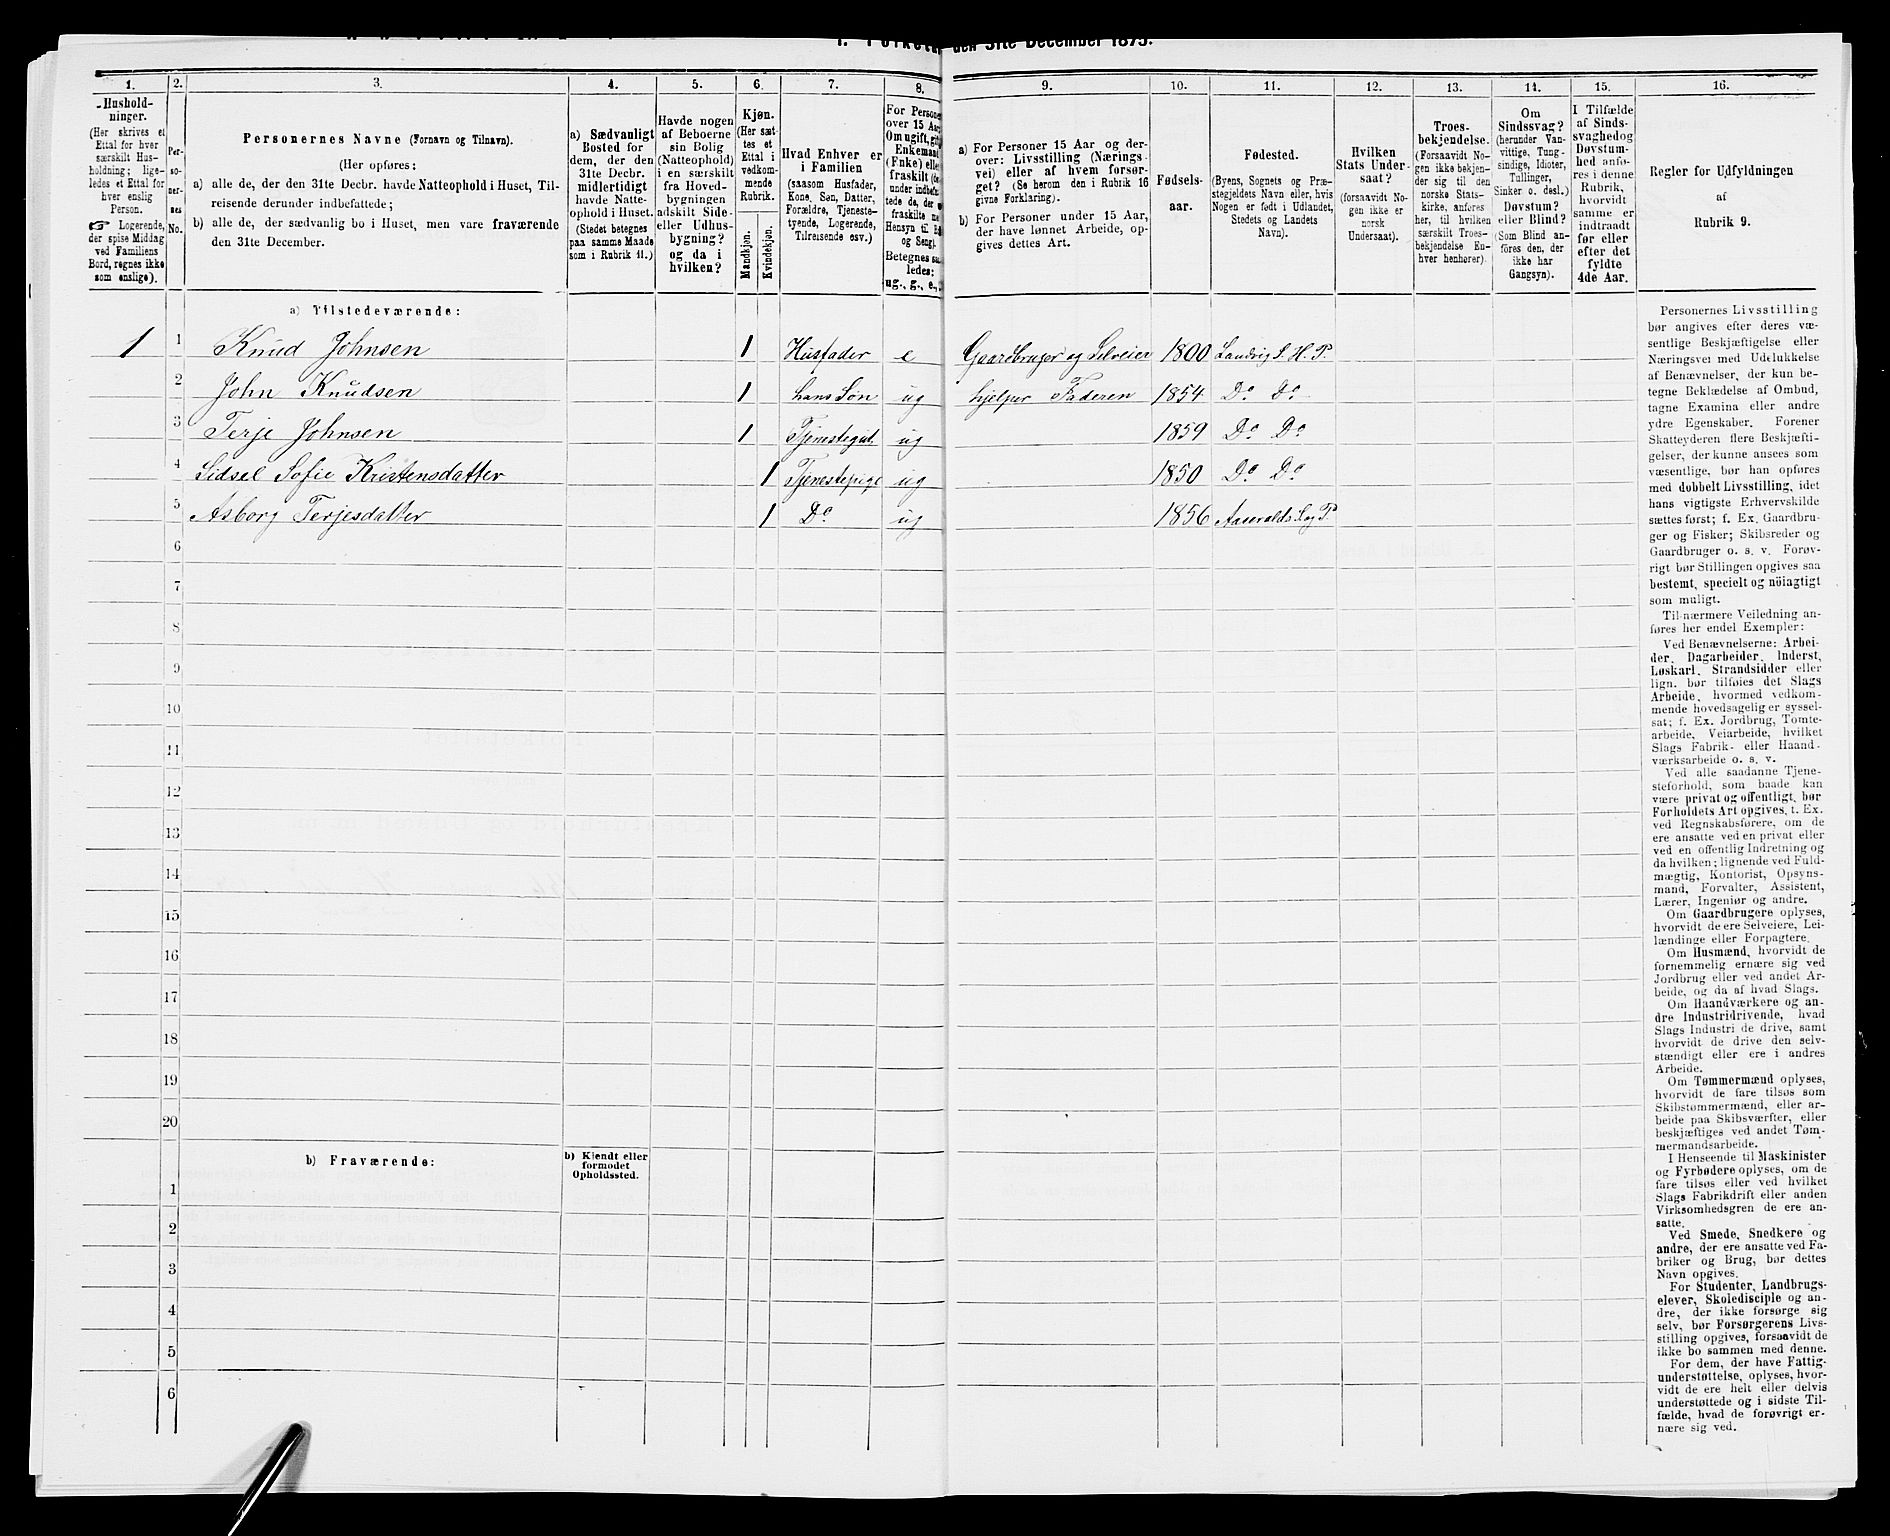 den 31te December 1875.
1.
Hushold-
ninger.
(Her skrives et
Ettal for hver
særskilt Hus-
holdning; lige-
ledes et Ettal for
hver enslig
Person.
☞ Logerende,
der spise Middag
ved Familiens
Bord, regnes ikke
som enslige).
2.
Per-
so-
ner-
nes
No.
3.
Personernes Navne (Fornavn og Tilnavn).
(Her opføres:
a) alle de, der den 31te Decbr. havde Natteophold i Huset, Til-
reisende derunder indbefattede;
b) alle de, der sædvanlig bo i Huset, men vare fraværende
den 31te December.
4.
a) Sædvanligt
Bosted for
dem, der den
31te Decbr.
midlertidigt
havde Natte-
ophold i Huset.
(Stedet betegnes
paa samme Maade
som i Rubrik 11.)
5.
Havde nogen
af Beboerne
sin Bolig
(Natteophold)
i en særskilt
fra Hoved-
bygningen
adskilt Side-
eller Udhus-
bygning?
og da i
hvilken?
6.
Kjøn.
(Her sæt-
tes et
Ettal i
vedkom-
mende
Rubrik.
Mandkjøn.
Kvindekjøn.
7.
Hvad Enhver er
i Familien
(saasom Husfader,
Kone, Søn, Datter,
Forældre, Tjeneste-
tyende, Logerende,
Tilreisende osv.)
8.
For Persone
over 15 Aar
Om ugift, gift
Enkemand
(Enke) eller
fraskilt
under indbefat-
tede de, der
fraskilte
Hensyn til B
og Seng).
Betegnes saa-
ledes:
ug., g., e.,
9.
a) For Personer 15 Aar og der-
over: Livsstilling (Nærings-
vei) eller af hvem forsør-
get? (Se herom den i Rubrik 16
givne Forklaring).
b) For Personer under 15 Aar,
der have lønnet Arbeide, op-
gives dettes Art.
10.
Fødsels-
aar.
11.
Fødested.
(Byens, Sognets og Præ-
stegjeldets Navn eller, hvis
Nogen er født i Udlandet,
Stedets og Landets
Navn).
12.
Hvilken
Stats Under-
saat?
(forsaavidt No-
gen ikke er
norsk
Undersaat).
13.
Troes-
bekjendelse.
(Forsaavidt No-
gen ikke bekjen-
der sig til den
norske Stats-
kirke, anføres
her, til hvilken
særskilt Troes-
bekjendelse En-
hver henhører).
14.
Om
Sindssvag?
(herunder Van-
vittige, Tung-
sindige, Idioter,
Tullinger,
Sinker o. desl.)
Døvstum?
eller Blind?
(Som Blind an-
føres den, der
ikke har
Gangsyn).
15.
I Tilfælde
af Sinds-
svaghed og
Døvstum-
hed anfø-
res i denne
Rubrik,
hvorvidt
samme er
indtraadt
før eller
efter det
fyldte
4de Aar.
16.
Regler for Udfyldningen
af
Rubrik 9.
a) Tilstedeværende:
1 1 Knud Johnsen 1 Husfader e Gaardbruger og Selveier 1800 Landvig S. H. P.
2 John Knudsen 1 hans Søn ug hjelper Faderen 1854 Do Do
3 Terje Johnsen 1 Tjenestegut ug 1859 Do Do
4 Sidsel Sofie Kristensdatter 1 Tjenestepige ug 1850 Do Do
5 Asborg Terjesdatter 1 Do ug 1856 Aaseralds S. og P.
6
7
8
9
10
11
12
13
14
15
16
17
18
19
20
b) Fraværende:
b) Kjendt eller
formodet
Opholdssted.
1
2
3
4
5
6
Personernes Livsstilling
bør angives efter deres væ-
sentlige Beskjæftigelse eller
Næringsvei med Udelukkelse
af Benævnelser, der kun be-
tegne Beklædelse af Ombud,
tagne Examina eller andre
ydre Egenskaber. Forener
Skatteyderen flere Beskjæfti-
gelser, der kunne ansees som
væsentlige, bør han opføres
med dobbelt Livsstilling, idet
hans vigtigste Erhvervskilde
sættes først; f. Ex. Gaardbru-
ger og Fisker; Skibsreder og
Gaardbruger o. s. v. Forøv-
rigt bør Stillingen opgives saa
bestemt, specielt og nöiagtigt
som muligt.
Til nærmere Veiledning an-
føres her endel Exempler:
Ved Benævnelserne: Arbei-
der, Dagarbeider, Inderst,
Løskarl, Strandsidder eller
lign. bør tilføies det Slags
Arbeide, hvormed vedkom-
mende hovedsagelig er syssel-
sat; f. Ex. Jordbrug, Tomte-
arbeide, Veiarbeide, hvilket
Slags Fabrik- eller Haand-
værksarbeide o. s. v.
Ved alle saadanne Tjene-
steforhold, som baade kan
være privat og offentligt, bør
Forholdets Art opgives, t. Ex.
ved Regnskabsførere, om de
ere ansatte ved en privat eller
ved en offentlig Indretning og
da hvilken; lignende ved Fuld-
mægtig, Kontorist, Opsyns-
mand, Forvalter, Assistent,
Lærer, Ingeniør og andre.
Om Gaardbrugere oplyses,
hvorvidt de ere Selveiere, Lei-
lændinge eller Forpagtere.
Om Husmænd, hvorvidt de
fornemmelig ernære sig ved
Jordbrug eller ved andet Ar-
beide, og da af hvad Slags.
Om Haandværkere og an-
dre Industridrivende, hvad
Slags Industri de drive, samt
hvorvidt de drive den selv-
stændigt eller ere i andres
Arbeide.
Om Tømmermænd oplyses,
hvorvidt de fare tilsøs som
Skibstømmermænd, eller ar-
beide paa Skibsværfter, eller
beskjæftiges ved andet Tøm-
mermandsarbeide.
I Henseende til Maskinister
og Fyrbødere oplyses, om de
fare tilsøs eller ved hvilket
Slags Fabrikdrift eller anden
Virksomhedsgren de ere an-
satte.
Ved Smede, Snedkere og
andre, der ere ansatte ved Fa-
briker og Brug, bør dettes
Navn opgives.
For Studenter, Landbrugs-
elever, Skoledisciple og an-
dre, der ikke forsørge sig
selv, bør Forsørgerens Livs-
stilling opgives, forsaavidt de
ikke bo sammen med denne.
For dem, der have Fattig-
understøttelse, oplyses, hvor-
vidt de ere helt eller delvis
understøttede og i sidste Til-
fælde, hvad de forøvrigt er-
nære sig ved.